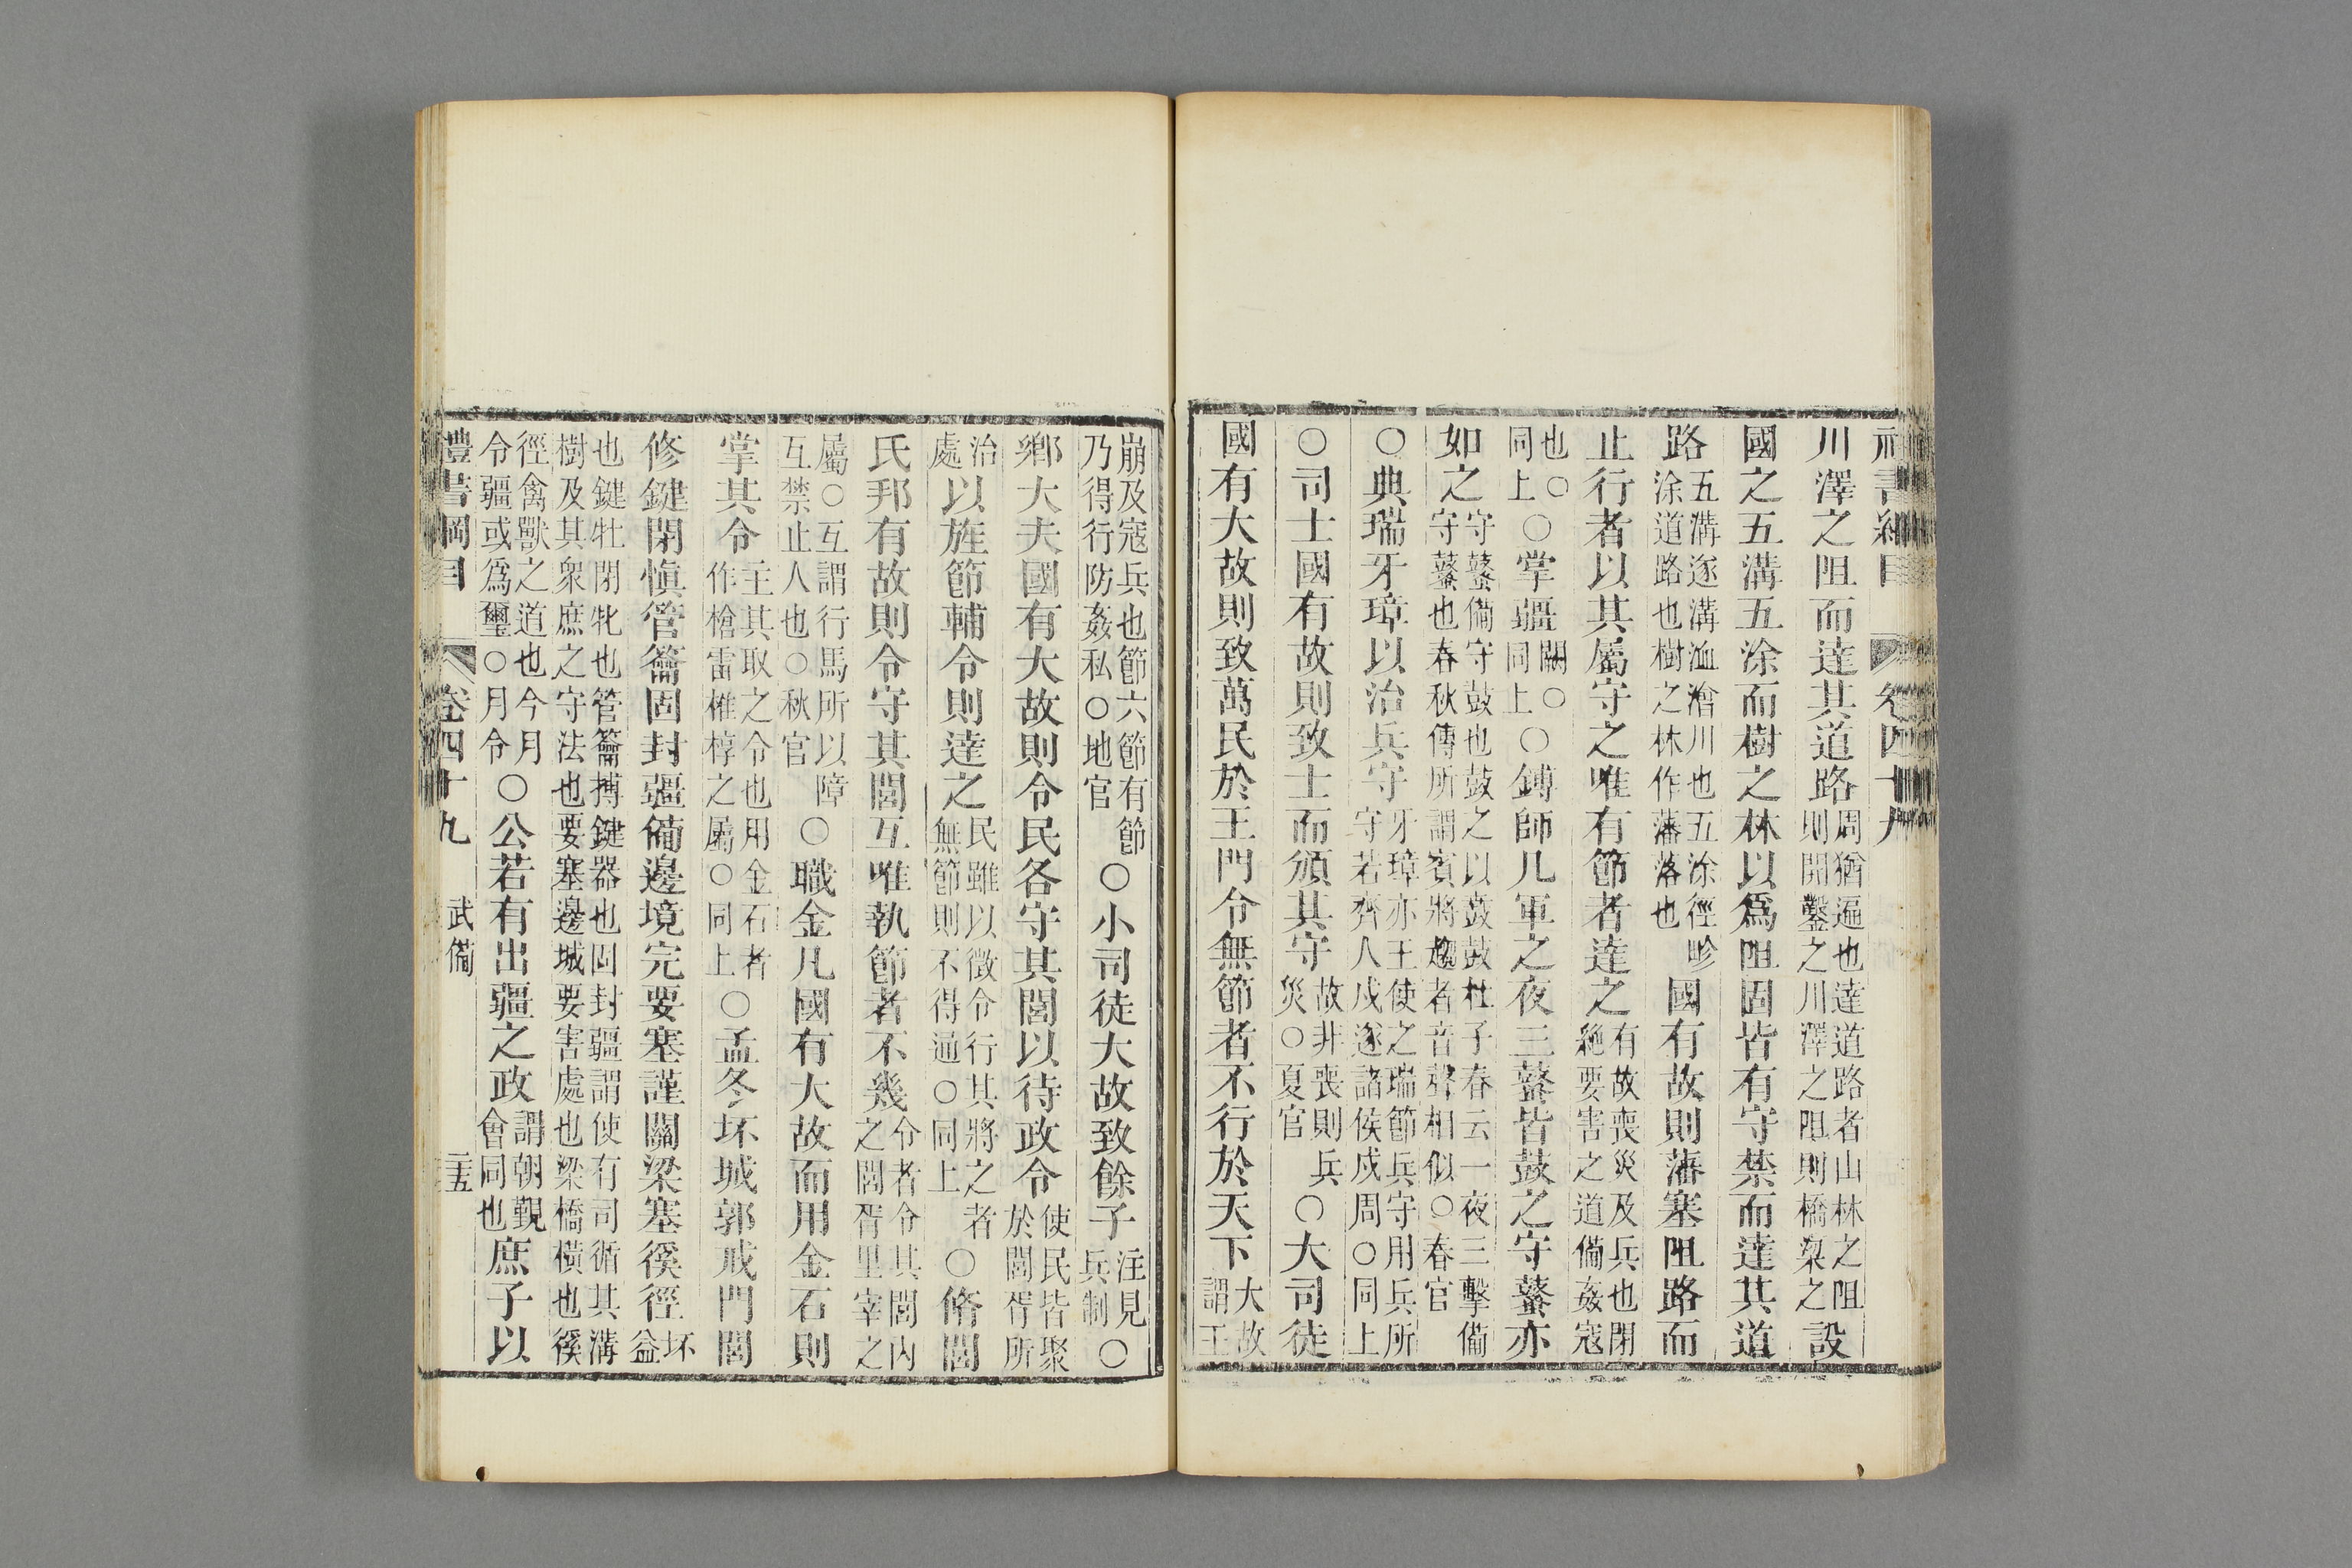 禮書綱目 卷四十九
川澤之阻而達其道路周猶遍也達道路者山林之阻則開鑿之川澤之阻則橋梁之設
國之五溝五涂而樹之林以爲阻固皆有守禁而達其道
路五溝逐溝洫澮川也五涂徑畛涂道路也樹之林作藩落也國有故則藩塞阻路而
止行者以其屬守之唯有節者達之有故喪災及兵也閉絶要害之道備姦寇
也○同上○掌疆闕○同上○鎛師凡軍之夜三鼜皆鼓之守鼜亦
如之守鼜備守鼓也鼓之以鼖鼓杜子春云一夜三擊備守鼜也春秋傳所謂賓將趨者音聲相似○春官
○典瑞牙璋以治兵守牙璋亦王使之瑞節兵守用兵所守若齊人戍遂諸侯戍周○同上
○司士國有故則致士而頒其守故非喪則兵災○夏官○大司徒
國有大故則致萬民於王門令無節者不行於天下大故謂王
崩及寇兵也節六節有節乃得行防姦私○地官○小司徒大故致餘子注見兵制○
鄉大夫國有大故則令民各守其閭以待政令使民皆聚於閭胥所
治處以旌節輔令則達之民雖以徵令行其將之者無節則不得通○同上○脩閭
氏邦有故則令守其閭互唯執節者不幾令者令其閭內之閭胥里宰之
屬○互謂行馬所以障互禁止人也○秋官○職金凡國有大故而用金石則
掌其令主其取之令也用金石者作槍雷椎椁之屬○同上○孟冬坏城郭戒門閭
修鍵閉愼管籥固封疆備邊境完要塞謹關梁塞徯徑坏益
也鍵牡閉牝也管籥搏鍵器也固封疆謂使有司循其溝樹及其衆庶之守法也要塞邊城要害處也梁橋橫也徯
徑禽獸之道也今月令疆或爲璽○月令○公若有出疆之政謂朝覲會同也庶子以
禮書綱目 卷四十九 武備 二五